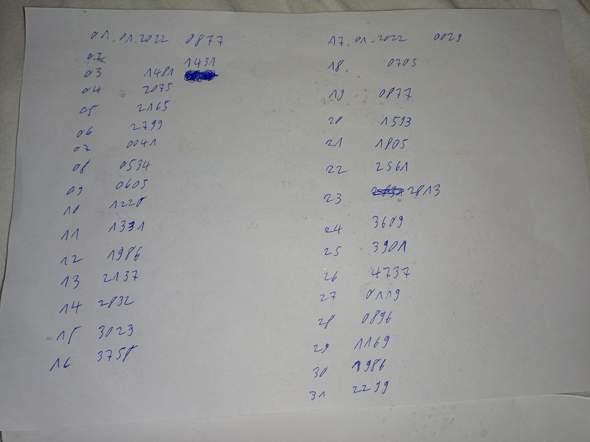 01.01.2022 0877
02 1431
03 1481
04 2075
05 2165
06 2799
07 0041
08 0534
09 0605
10 1228
11 1331
12 1986
13 2137
14 2832
15 3023
16 3758
17.01.2022 0029
18. 0705
19 0877
20 1593
21 1805
22 2561
23 2813
24 3689
25 3901
26 4737
27 0119
28 0896
29 1169
30 1986
31 2299